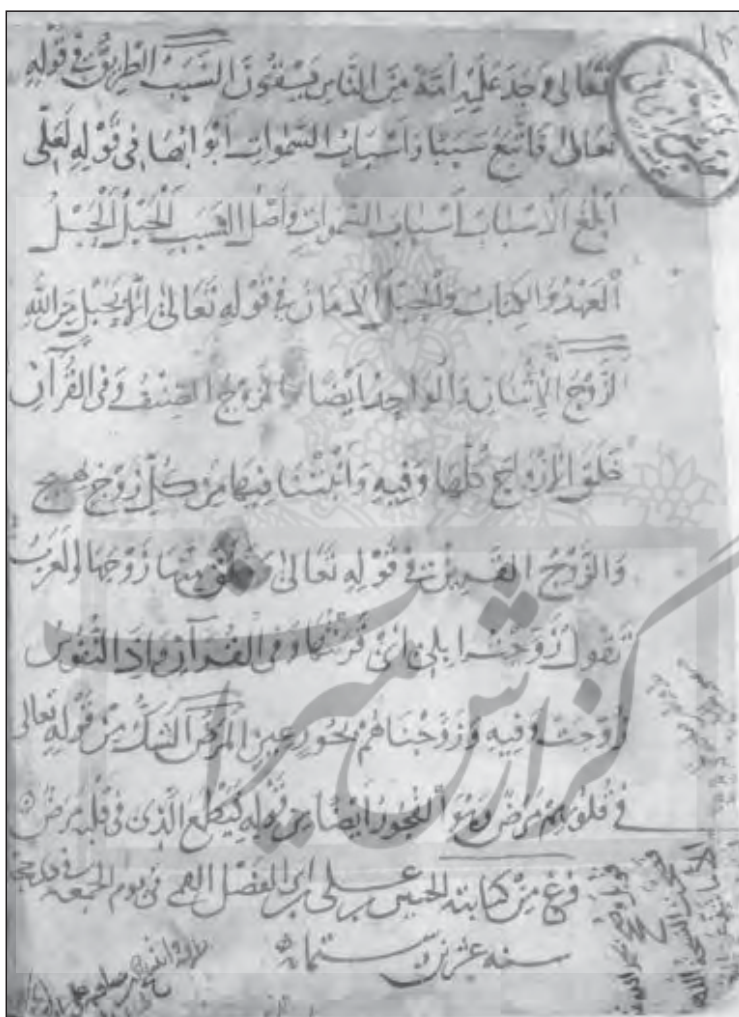 تَعَالَى وَجَدَ عَلَيْهِ أُمَّةً مِنَ النَّاسِ يَسْقُونَ السَّبَبُ الطَّرِيقُ فِي قَوْلِهِ
تَعَالَى فَاتَّبَعَ سَبَبًا وَأَسْبَابُ السَّمٰوَاتِ أَبْوَابُهَا فِي قَوْلِهِ لَعَلِّى
أَبْلُغُ الْأَسْبَابَ أَسْبَابَ السَّمٰوَاتِ وَأَصْلُ السَّبَبِ الْحَبْلُ الْحَبْلُ
الْعَهْدُ وَالْكِتَابُ وَالْحَبْلُ الْأَمَانُ فِي قَوْلِهِ تَعَالَى إِلَّا بِحَبْلٍ مِنَ اللهِ
الزَّوْجُ الْإِثْنَانِ وَالْوَاحِدُ أَيْضًا وَالزَّوْجُ الصِّنْفُ وَفِي الْقُرْآنِ
خَلَقَ الْأَزْوَاجَ كُلَّهَا وَفِيهِ وَأَنْبَتْنَا فِيهَا مِنْ كُلِّ زَوْجٍ بَهِيجٍ
وَالزَّوْجُ الْقَرِينُ فِي قَوْلِهِ تَعَالَى وَخَلَقَ مِنْهَا زَوْجَهَا وَالْعَرَبُ
تَقُولُ زَوَّجْتُ إِبِلِي أَيْ قَرَنْتُهَا وَفِي الْقُرْآنِ وَإِذَا النُّفُوسُ
زُوِّجَتْ وَفِيهِ وَزَوَّجْنَاهُمْ بِحُورٍ عِينٍ الْمَرَضُ الشَّكُّ مِنْ قَوْلِهِ تَعَالَى
فِي قُلُوبِهِمْ مَرَضٌ وَهُوَ الْفُجُورُ أَيْضًا مِنْ قَوْلِهِ فَيَطْمَعَ الَّذِي فِي قَلْبِهِ مَرَضٌ
فرغ من كتابته الحسين بن على بن ابى الفضل فى يوم الجمعة فى
سنه عشرين ستمائة
گزارش میراث